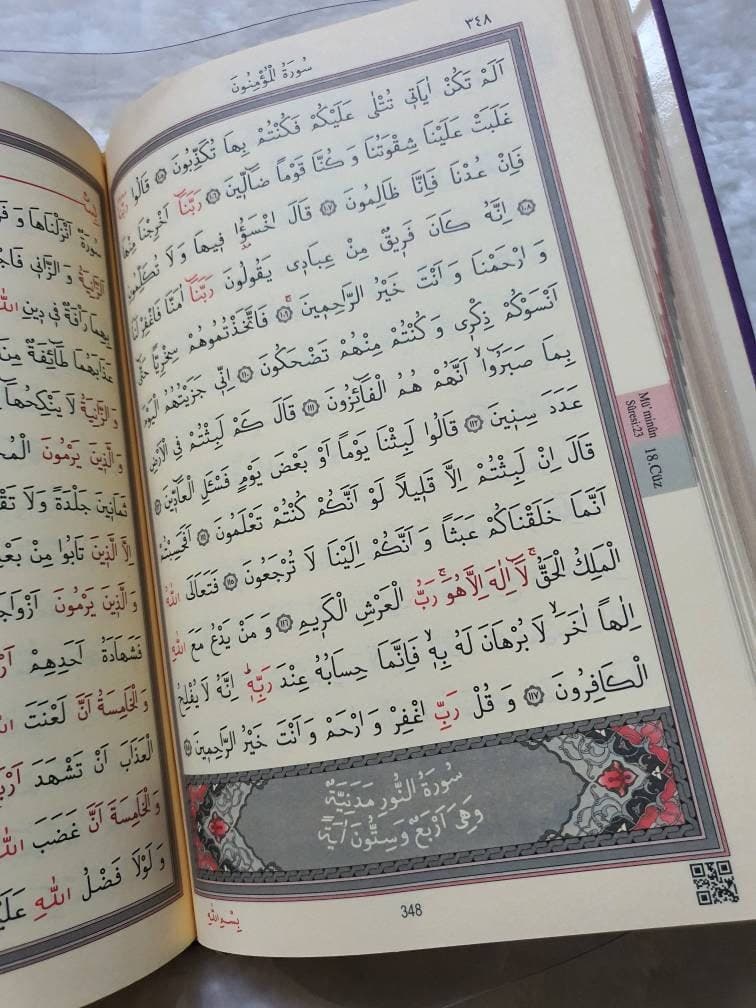 ٣٤٨
سُورَةُ الْمُؤْمِنُونَ
اَلَمْ تَكُنْ اٰيَاتٖى تُتْلٰى عَلَيْكُمْ فَكُنْتُمْ بِهَا تُكَذِّبُونَ ﴿١٠٥﴾ قَالُوا رَبَّنَا
غَلَبَتْ عَلَيْنَا شِقْوَتُنَا وَ كُنَّا قَوْماً ضَٓالّٖينَ ﴿١٠٦﴾ رَبَّنَٓا اَخْرِجْنَا مِنْهَا
فَاِنْ عُدْنَا فَاِنَّا ظَالِمُونَ ﴿١٠٧﴾ قَالَ اخْسَؤُ۫ا فٖيهَا وَ لَا تُكَلِّمُونِ
﴿١٠٨﴾ اِنَّهُ كَانَ فَرٖيقٌ مِنْ عِبَادٖى يَقُولُونَ رَبَّنَٓا اٰمَنَّا فَاغْفِرْ لَنَا
وَ ارْحَمْنَا وَ اَنْتَ خَيْرُ الرَّاحِمٖينَۚ ﴿١٠٩﴾ فَاتَّخَذْتُمُوهُمْ سِخْرِياًّ حَتّٰٓى
اَنْسَوْكُمْ ذِكْرٖى وَ كُنْتُمْ مِنْهُمْ تَضْحَكُونَ ﴿١١٠﴾ اِنّٖى جَزَيْتُهُمُ الْيَوْمَ
بِمَا صَبَرُٓواۙ اَنَّهُمْ هُمُ الْفَٓائِزُونَ ﴿١١١﴾ قَالَ كَمْ لَبِثْتُمْ فِى الْاَرْضِ
عَدَدَ سِنٖينَ ﴿١١٢﴾ قَالُوا لَبِثْنَا يَوْماً اَوْ بَعْضَ يَوْمٍ فَسْـَٔلِ الْعَٓادّٖينَ ﴿١١٣﴾
قَالَ اِنْ لَبِثْتُمْ اِلَّا قَلٖيلاً لَوْ اَنَّكُمْ كُنْتُمْ تَعْلَمُونَ ﴿١١٤﴾ اَفَحَسِبْتُمْ
اَنَّمَا خَلَقْنَاكُمْ عَبَثاً وَ اَنَّكُمْ اِلَيْنَا لَا تُرْجَعُونَ ﴿١١٥﴾ فَتَعَالَى اللّٰهُ
الْمَلِكُ الْحَقُّۚ لَٓا اِلٰهَ اِلَّا هُوَۚ رَبُّ الْعَرْشِ الْكَرٖيمِ ﴿١١٦﴾ وَ مَنْ يَدْعُ مَعَ اللّٰهِ
اِلٰهاً اٰخَرَۙ لَا بُرْهَانَ لَهُ بِهٖۙ فَاِنَّمَا حِسَابُهُ عِنْدَ رَبِّهٖؕ اِنَّهُ لَا يُفْلِحُ
الْكَافِرُونَ ﴿١١٧﴾ وَ قُلْ رَبِّ اغْفِرْ وَ ارْحَمْ وَ اَنْتَ خَيْرُ الرَّاحِمٖينَ ﴿١١٨﴾
سُورَةُ النُّورِ مَدَنِيَّةٌ
وَهِىَ اَرْبَعٌ وَسِتُّونَ اٰيَةً
بِسْمِ اللّٰهِ
348
Mü'minûn
Sûresi:23
18.Cüz
سُورَةٌ اَنْزَلْنَاهَا وَ
اَلزَّانِيَةُ وَ الزَّانٖى
بِهِمَا رَأْفَةٌ فٖى دٖينِ
عَذَابَهُمَا طَٓائِفَةٌ مِنَ
وَ الزَّانِيَةُ لَا يَنْكِحُهَٓا
وَ الَّذٖينَ يَرْمُونَ
ثَمَانٖينَ جَلْدَةً وَلَا
اِلَّا الَّذٖينَ تَابُوا مِنْ
وَ الَّذٖينَ يَرْمُونَ
فَشَهَادَةُ اَحَدِهِمْ
وَ الْخَامِسَةُ اَنَّ لَعْنَتَ
الْعَذَابَ اَنْ تَشْهَدَ
وَ الْخَامِسَةَ اَنَّ غَضَبَ
وَ لَوْلَا فَضْلُ اللّٰهِ